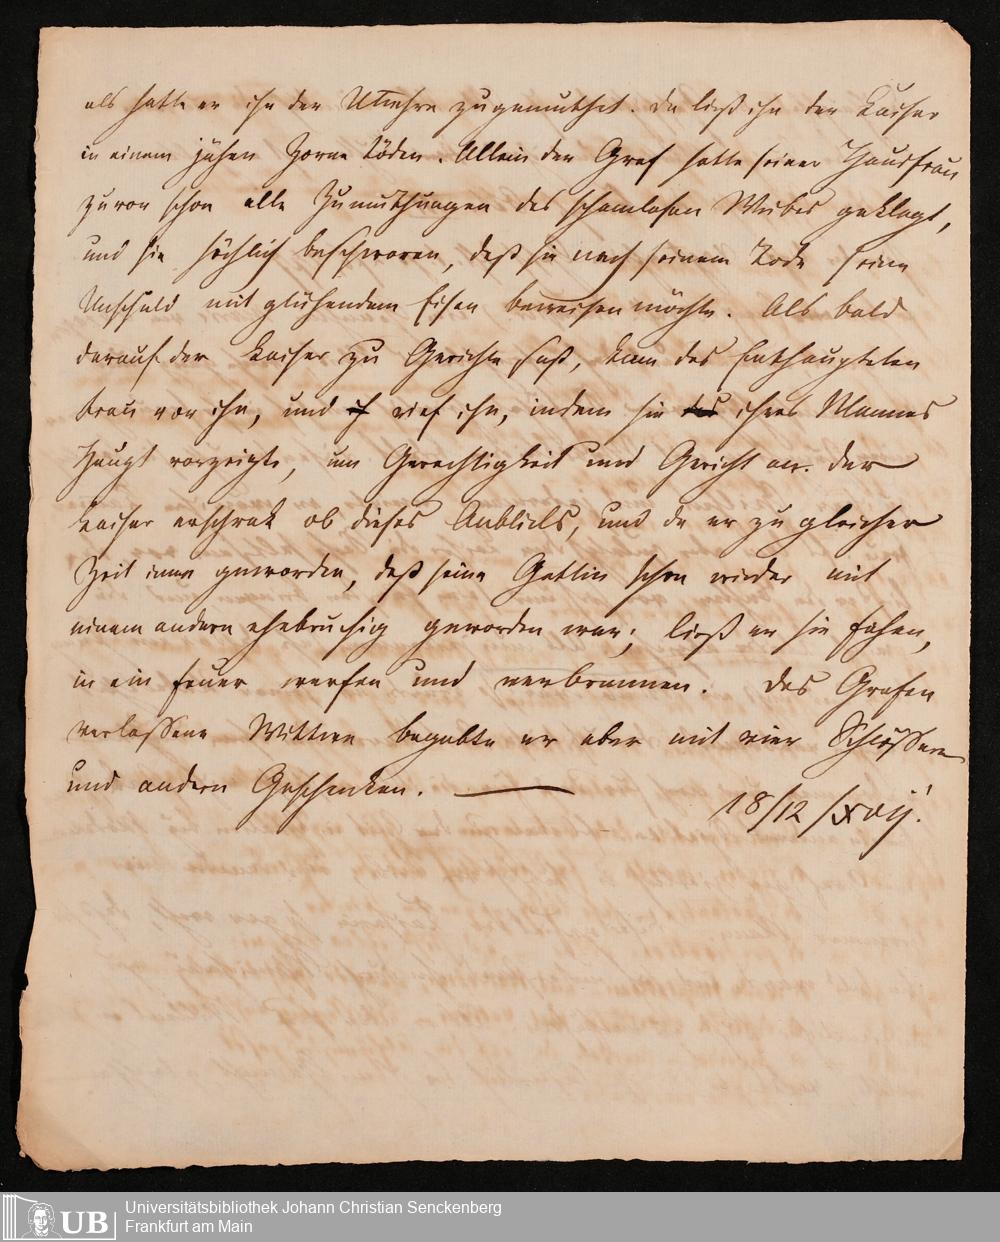 als hatte er ihr der Unehre zugemuthet. Da ließ ihn der Kaiser
in einem jähen Zorne töden. Allein der Graf hatte seiner Hausfrau
zuvor schon alle Zumuthungen des schamlosen Weibes geklagt,
und sie höchlich beschworen, daß sie nach seinem Tode seine
Unschuld mit glühendem Eisen beweisen möchte. Als bald
darauf der Kaiser zu Gerichte saß, kam des Enthaupteten
Frau vor ihn, und rief ihn, indem sie ihres Mannes
Haupt vorzeigte, um Gerechtigkeit und Gericht an. Der
Kaiser erschrak ob dieses Anblicks, und da er zu gleicher
Zeit inne geworden, daß seine Gattin schon wieder mit
einem andern ehebruchig geworden war; ließ er sie fahen,
in ein Feuer werfen und verbrennen. Des Grafen
verlassene Wittwe begabte er aber mit vier Schlössern
und andern Geschenken. —
18/12
Universitätsbibliothek Johann Christian Senckenberg
Frankfurt am Main
UB